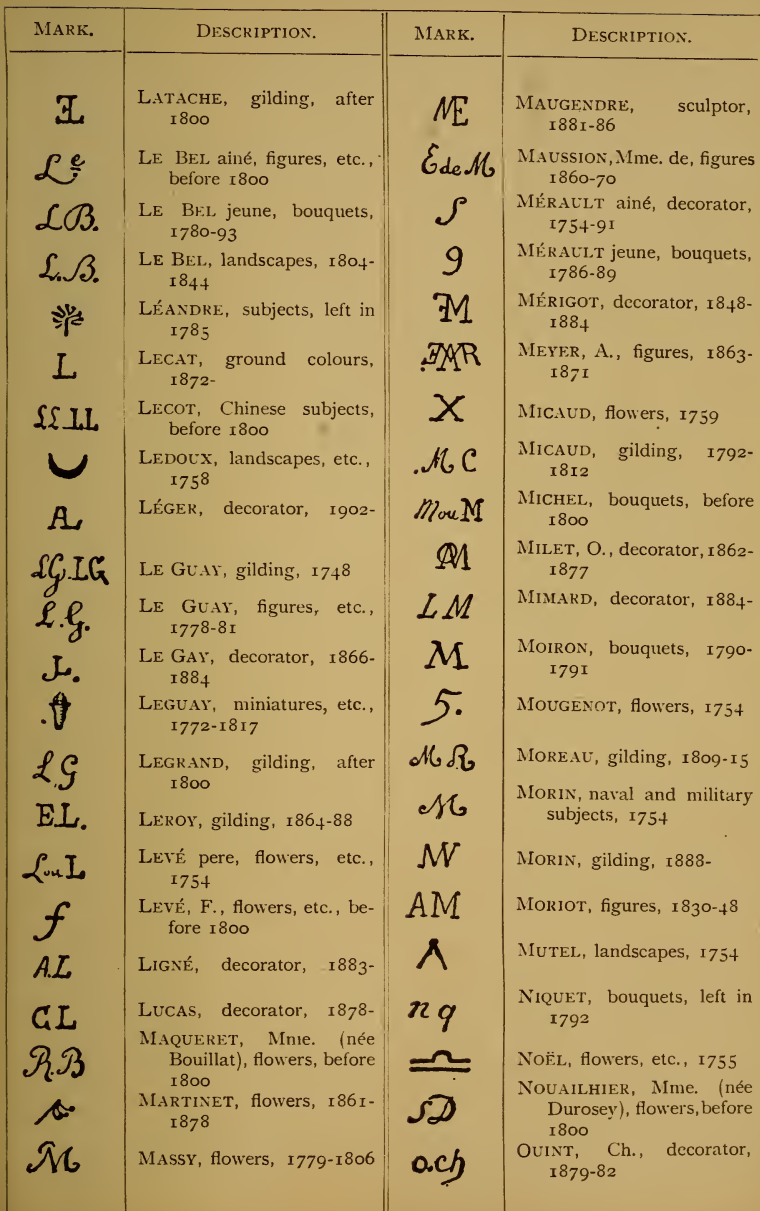 MARK. DESCRIPTION.
LATACHE, gilding, after
1800
Le LE BEL ainé, figures, etc.,
before 1800
L.B. LE BEL jeune, bouquets,
1780-93
L.B. LE BEL, landscapes, 1804-
1844
LÉANDRE, subjects, left in
1785
L LECAT, ground colours,
1872-
LL LL LECOT, Chinese subjects,
before 1800
LEDOUX, landscapes, etc.,
1758
AL LÉGER, decorator, 1902-
LG.LG LE GUAY, gilding, 1748
L.G. LE GUAY, figures, etc.,
1778-81
L. LE GAY, decorator, 1866-
1884
LEGUAY, miniatures, etc.,
1772-1817
L.G LEGRAND, gilding, after
1800
E.L. LEROY, gilding, 1864-88
L ou L LEVÉ pere, flowers, etc.,
1754
f LEVÉ, F., flowers, etc., be-
fore 1800
A.L LIGNÉ, decorator, 1883-
CL LUCAS, decorator, 1878-
R.B MAQUERET, Mme. (née
Bouillat), flowers, before
1800
MARTINET, flowers, 1861-
1878
M MASSY, flowers, 1779-1806
MARK. DESCRIPTION.
ME MAUGENDRE, sculptor,
1881-86
E de M MAUSSION, Mme. de, figures
1860-70
S MÉRAULT ainé, decorator,
1754-91
9 MÉRAULT jeune, bouquets,
1786-89
MÉRIGOT, decorator, 1848-
1884
MEYER, A., figures, 1863-
1871
X MICAUD, flowers, 1759
MC MICAUD, gilding, 1792-
1812
M ou M MICHEL, bouquets, before
1800
MILET, O., decorator, 1862-
1877
LM MIMARD, decorator, 1884-
M MOIRON, bouquets, 1790-
1791
5. MOUGENOT, flowers, 1754
MR MOREAU, gilding, 1809-15
M MORIN, naval and military
subjects, 1754
MORIN, gilding, 1888-
AM MORIOT, figures, 1830-48
MUTEL, landscapes, 1754
nq NIQUET, bouquets, left in
1792
NOËL, flowers, etc., 1755
SD NOUAILHIER, Mme. (née
Durosey), flowers, before
1800
o.ch OUINT, Ch., decorator,
1879-82